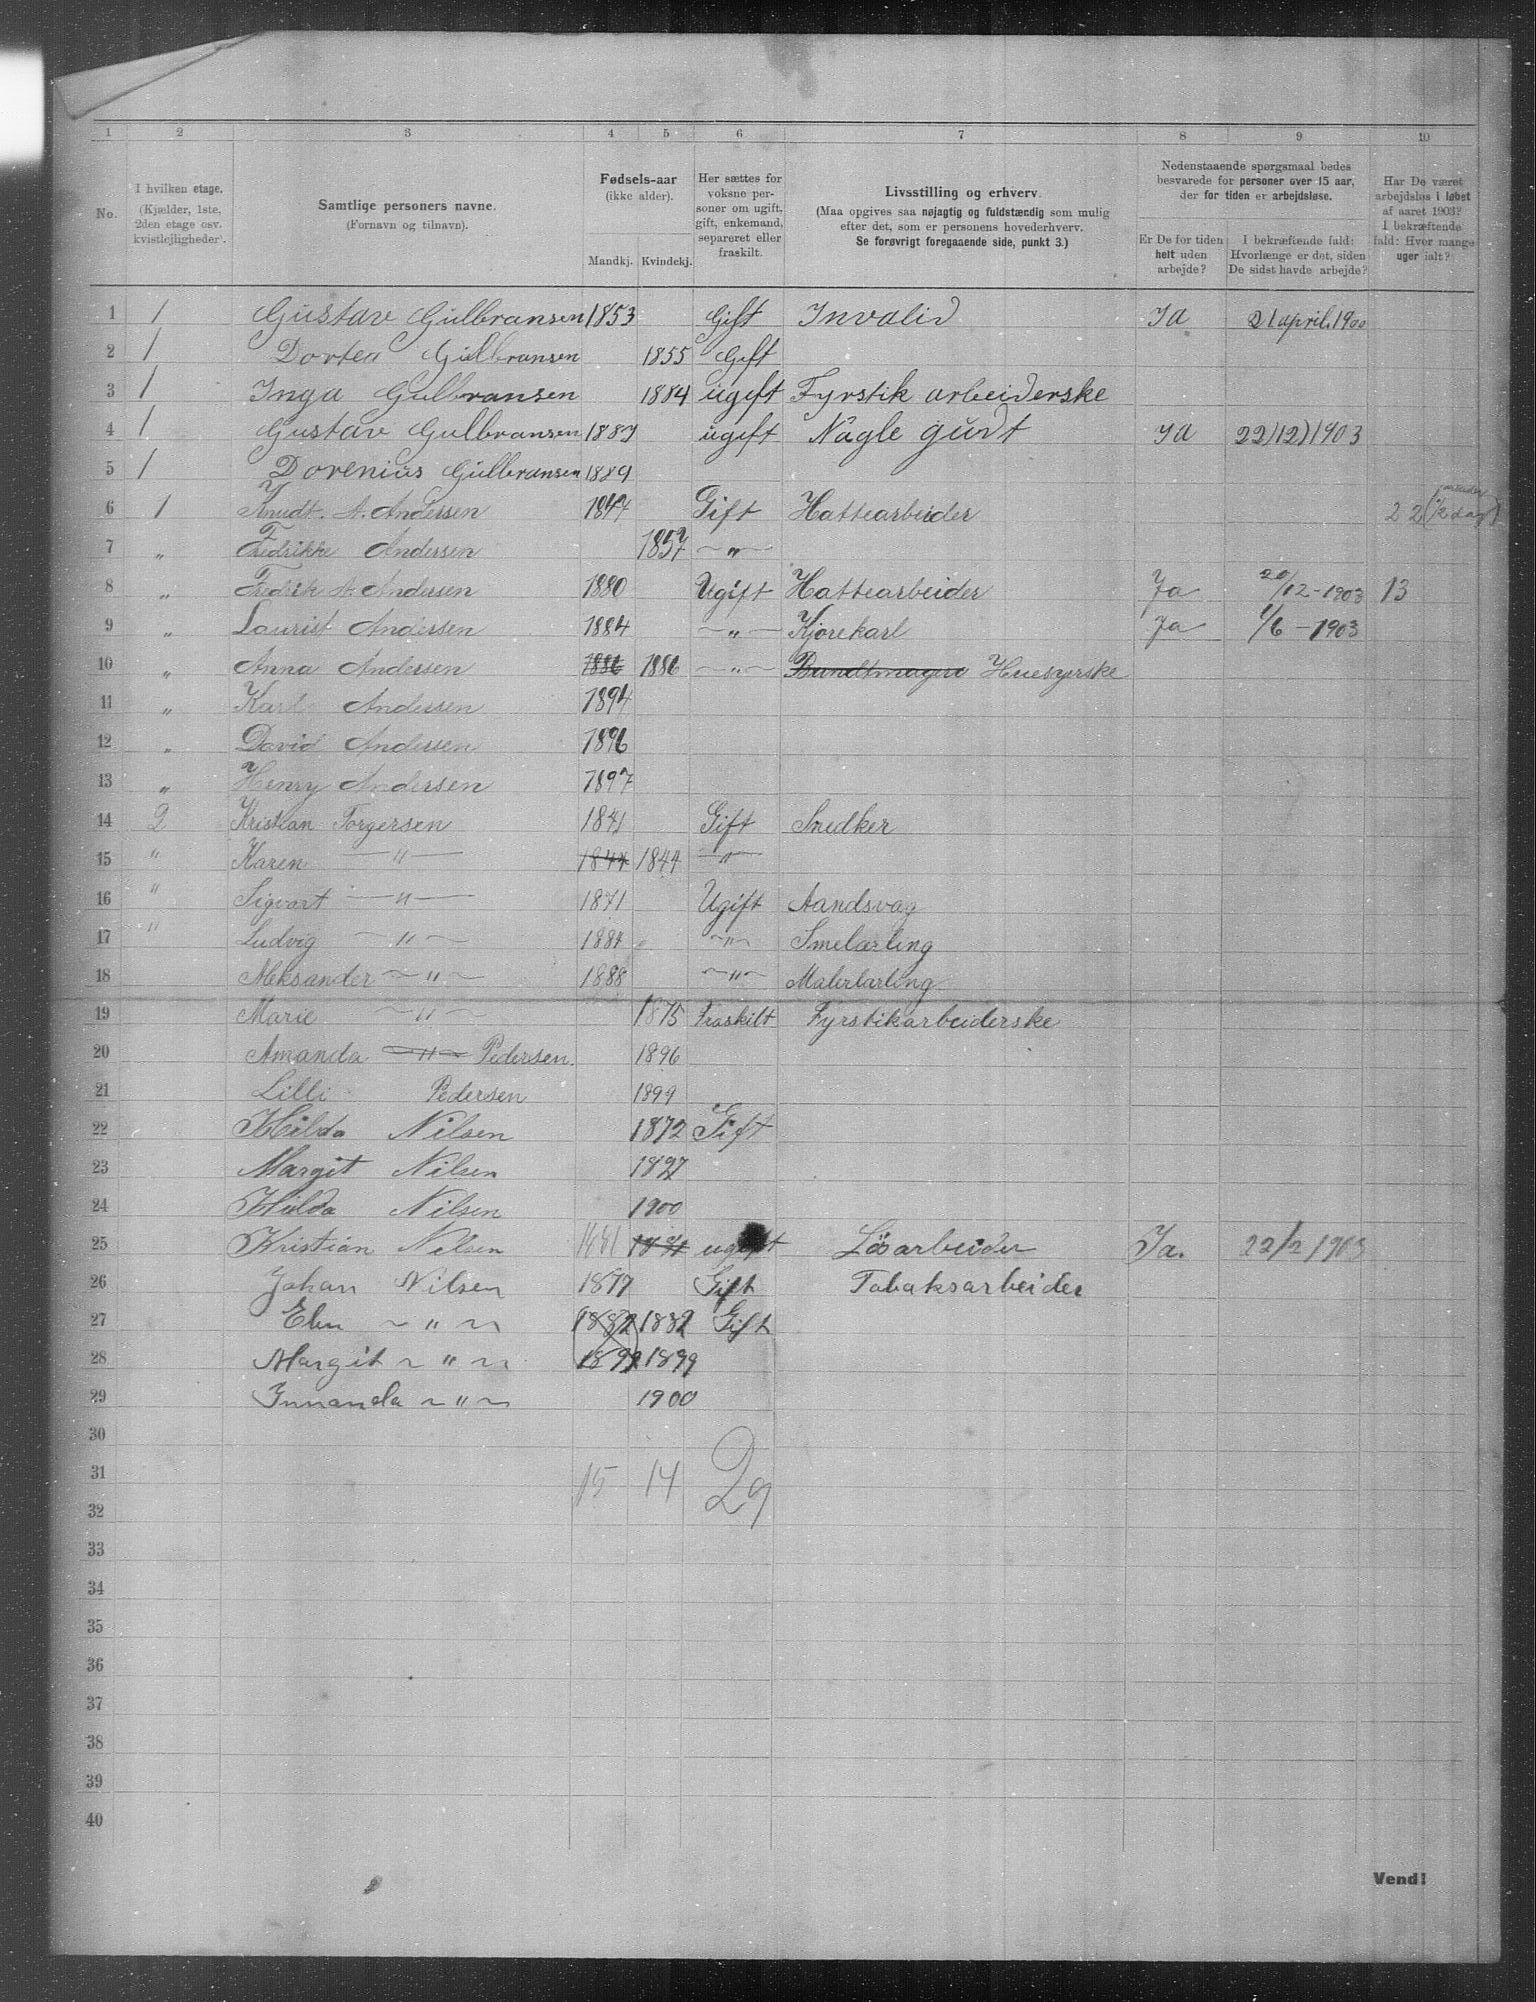 1 2 3 4 5 6 7 8 9 10
No.
I hvilken etage.
(Kjælder, 1ste,
2den etage osv.
kvistlejligheder).
Samtlige personers navne.
(Fornavn og tilnavn).
Fødsels-aar
(ikke alder).
Mandkj. Kvindekj.
Her sættes for
voksne per-
soner om ugift,
gift, enkemand,
separeret eller
fraskilt.
Livsstilling og erhverv.
(Maa opgives saa nøjagtig og fuldstændig som mulig
efter det, som er personens hovederhverv.
Se forøvrigt foregaaende side, punkt 3.)
Nedenstaaende spørgsmaal bedes
besvarede for personer over 15 aar,
der for tiden er arbejdsløse.
Er De for tiden
helt uden
arbejde?
I bekræftende fald:
Hvorlænge er det, siden
De sidst havde arbejde?
Har De været
arbejdsløs i løbet
af aaret 1903?
I bekræftende
fald: Hvor mange
uger ialt?
1 1 Gustav Gulbransen 1853 Gift Invalid Ja 21 april 1900
2 1 Dortea Gulbransen 1855 Gift
3 1 Inga Gulbransen 1884 ugift Fyrstik arbeiderske
4 1 Gustav Gulbransen 1887 ugift Nagle gudt Ja 22/12 1903
5 1 Dorenius Gulbransen 1889
6 1 Knudt. A. Andersen 1847 Gift Hattearbeider 2 2 1/2 dag
7 " Fredrikke Andersen 1857 — " —
8 " Fredrik A. Andersen 1880 Ugift Hattearbeider Ja 20/12-1903 13
9 " Laurist Andersen 1884 — " — Kjørekarl Ja 1/6 - 1903
10 " Anna Andersen 1886 1886 — " — Bundtmager Huesyerske
11 " Karl Andersen 1894
12 " David Andersen 1896
13 " Henry Andersen 1897
14 2 Kristian Torgersen 1841 Gift Snedker
15 " Karen — " — 1844 1844 — " —
16 " Sigvart — " — 1871 Ugift Aandsvag
17 " Ludvig — " — 1884 — " — Smelærling
18 Aleksander — " — 1888 — " — Malerlærling
19 Marie — " — 1875 Fraskilt Fyrstikarbeiderske
20 Amanda — " — Pedersen. 1896
21 Lilli Pedersen 1899
22 Hilda Nilsen 1872 Gift
23 Margit Nilsen 1897
24 Hilda Nilsen 1900
25 Kristian Nilsen 1881 ugift Løsarbeider Ja. 22/2 1903
26 Johan Nilsen 1877 Gift Tobaksarbeider
27 Elen — " — 1882 1882 Gift
28 Margit — " — 1899 1899
29 — " — 1900
30
31 15 14 29
32
33
34
35
36
37
38
39
40
Vend!